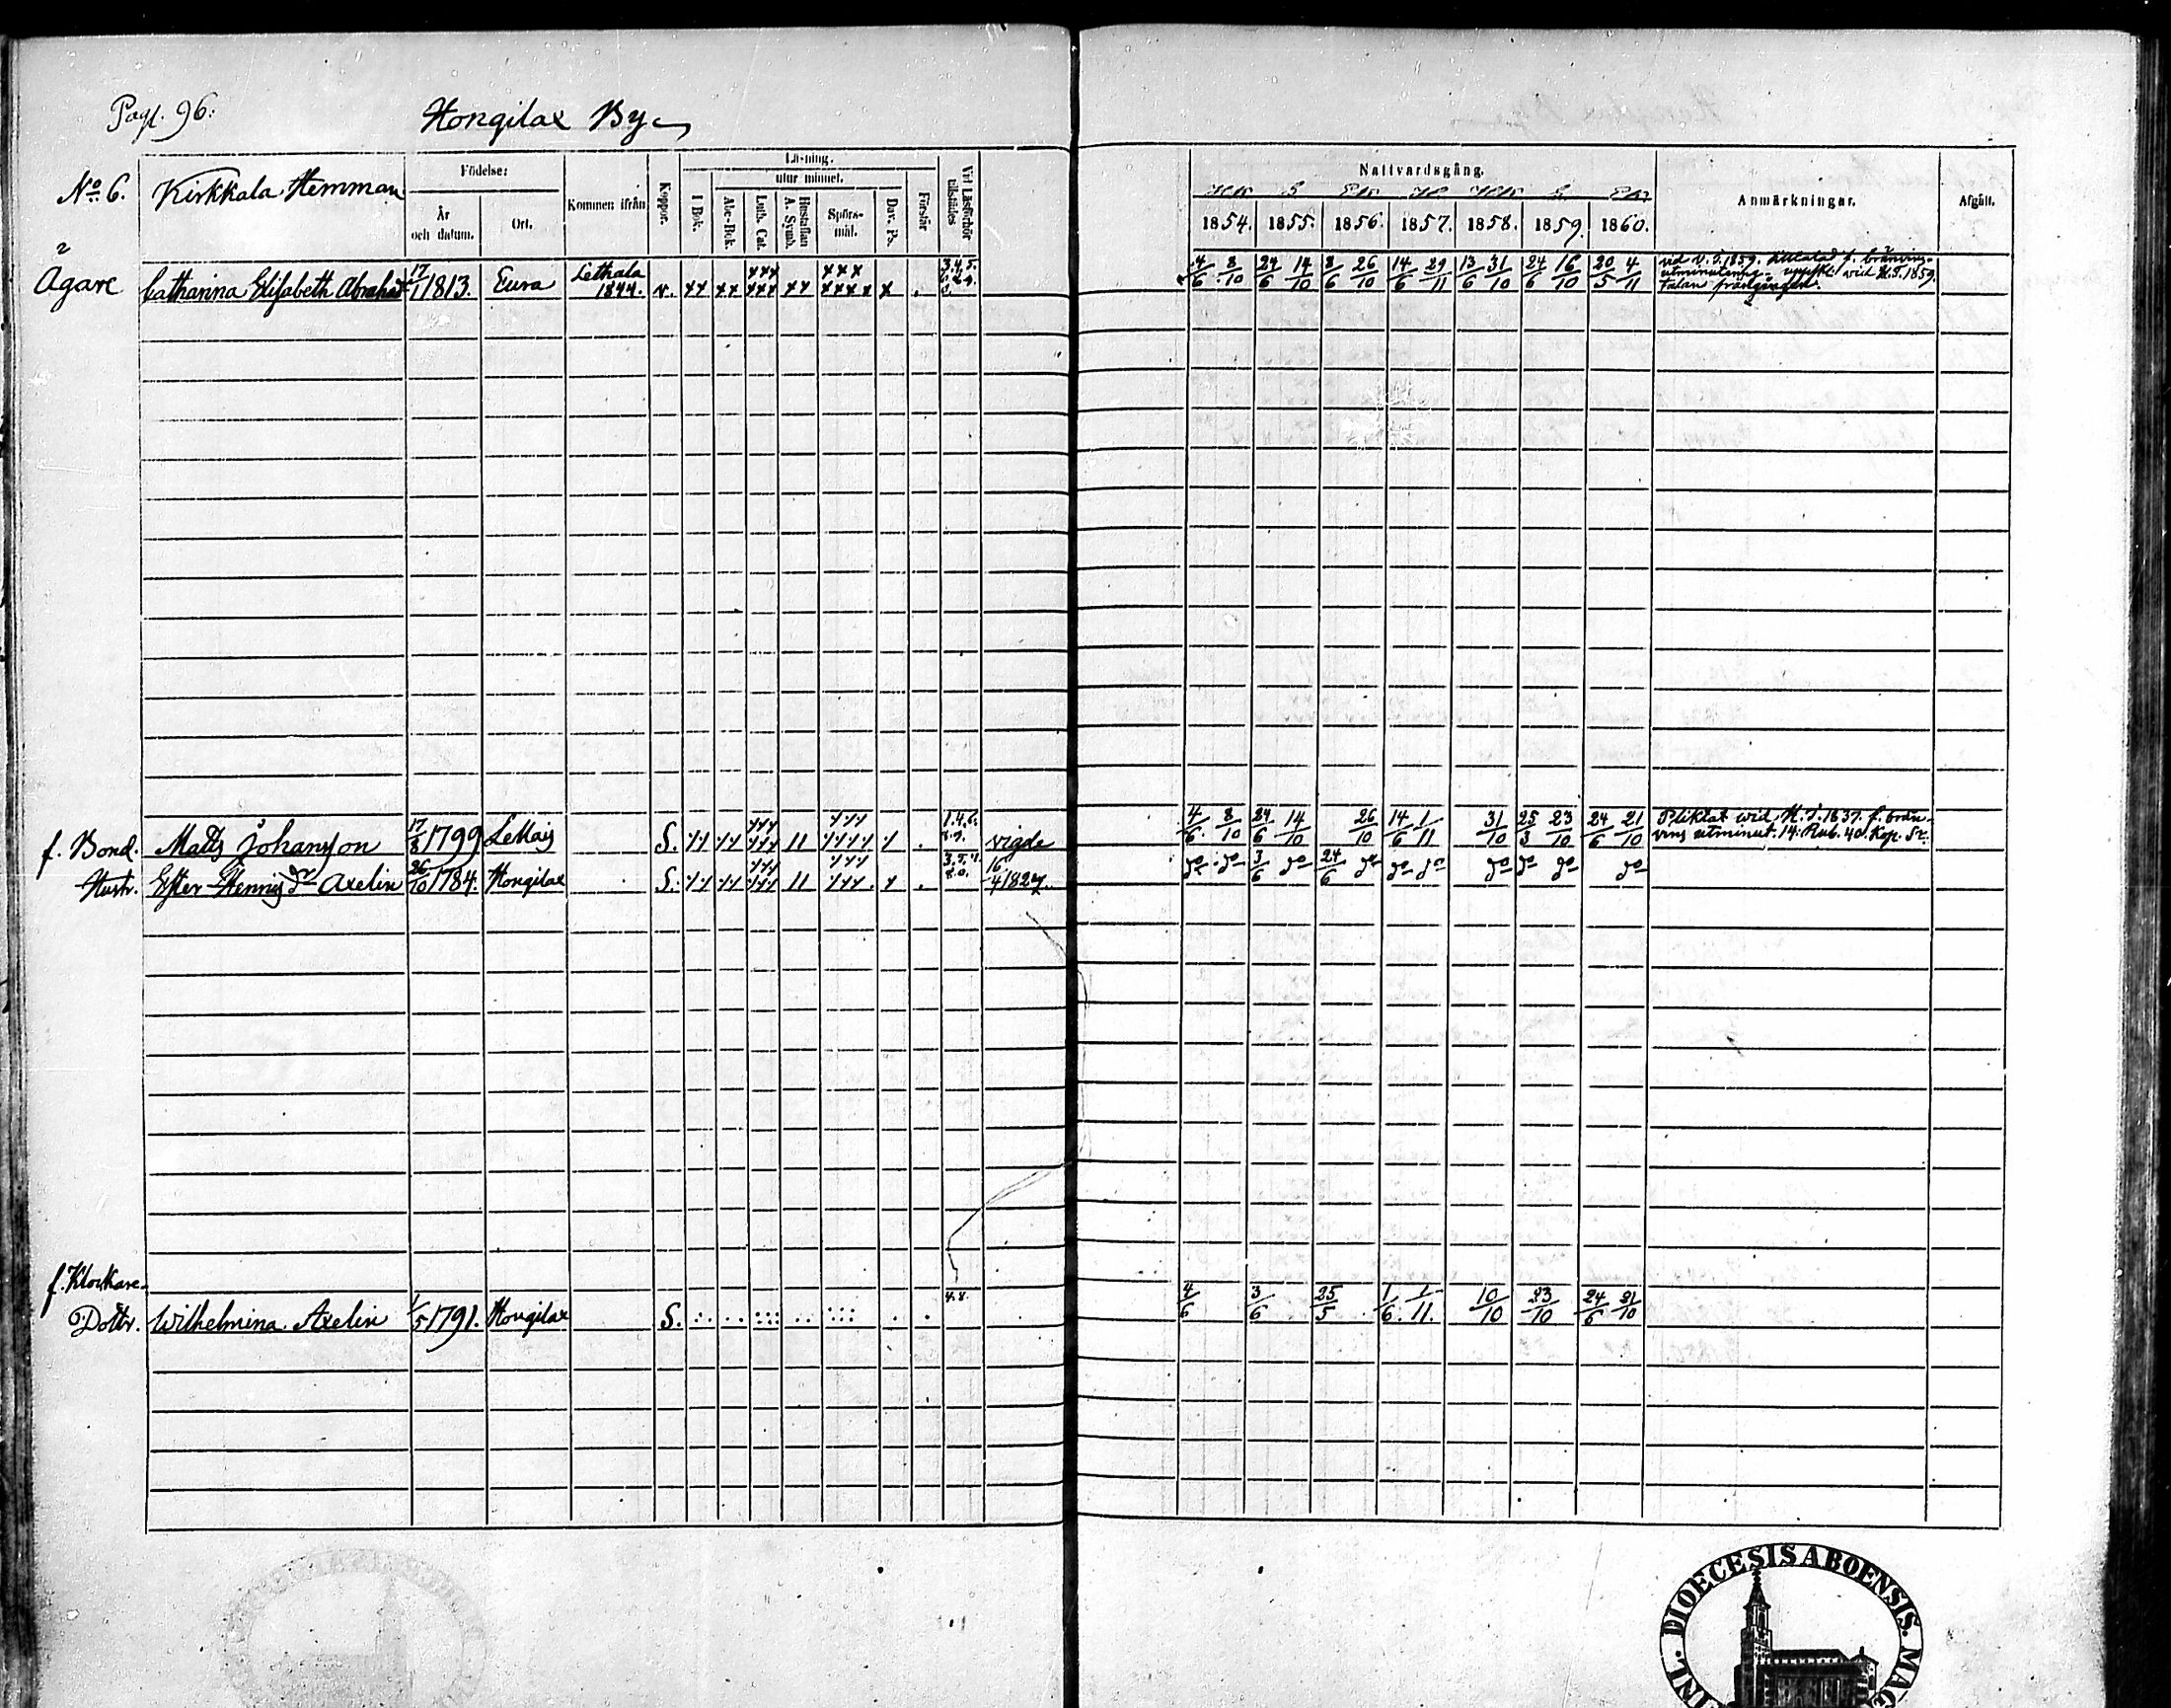 Pag. 96.
Hongilax By
No 6. Kirkkala Hemman
Födelse:
År och datum.
Ort.
Kommen ifrån
Koppor.
Läsning.
utur minnet.
I Bok.
Abc-Bok.
Luth. Cat.
Hustaflan A. Symb.
Spörs-mål.
Dav. Ps.
Förstår
Vid Läsförhör tillstädes
Nattvardsgång.
1854. 1855. 1856. 1857. 1858. 1859. 1860.
Anmärkningar.
Afgått.
Ägare Catharina Elisabeth Abrahad 17/1 1813. Eura Lethala 1844. v. xx xx xxx xxx xx xxx xxxx x 4/6 8/10 24/6 14/10 8/6 26/10 14/6 29/11 13/6 31/10 24/6 16/10 20/5 4/11
vid V.T. 1859. f. bränvins-
utminutering - uppskt. wid H.T. 1859.
talan frångången.
f. Bond. Matts Johansson 17/8 1799 LeMais S. xx xx xxx xxx 11 xxx xxxx x . vigde 4/6 8/10 24/6 14/10 26/10 14/6 1/11 31/10 25/3 23/10 24/6 21/10
Pliktat wid H.T. 1837. f. brän-
vins utminut. 14: Rub. 40. Kop. Sr.
Hustr. Ester Hennisdr Axelin 26/10 1784. Hongilax S. xx xx xxx xxx 11 xxx xxx x . 16/4 1827. do do 3/6 do 24/6 do do do do do do do
f. Klockare-
Dottr. Wilhelmina Axelin 1/5 1791. Hongilax S. 4.8. 4/6 3/6 25/5 1/6 1/11 10/10 23/10 24/6 21/10
DIOECESIS ABOENSIS.